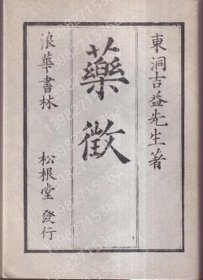 東洞吉益先生著
藥徵
浪華書林 松根堂發行